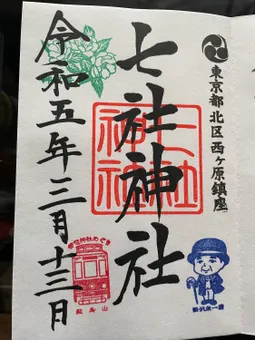 東京都北区西ヶ原鎮座
七社神社
七社神社
令和五年三月十三日
飛鳥山